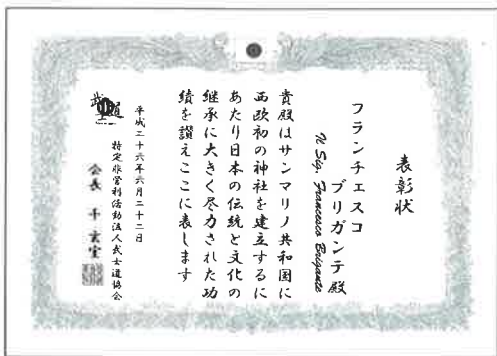 表彰状
フランチェスコ
ブリガンテ殿
Il Sig. Francesco Brigante
貴殿はサンマリノ共和国に
西欧初の神社を建立するに
あたり日本の伝統と文化の
継承に大きく尽力された功
績を讃えここに表します
平成二十六年六月二十二日
特定非営利活動法人武士道協会
会長 千 玄室
武士道